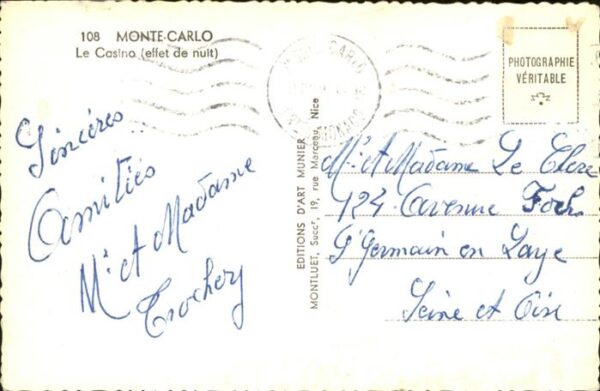 108 MONTE-CARLO
Le Casino (effet de nuit)
MONTE-CARLO
PHOTOGRAPHIE
VÉRITABLE
Sincères
Amitiés
Mr et Madame
Trochery
EDITIONS D'ART MUNIER
MONTLUET, Succr, 19, rue Marceau, Nice
Mr et Madame Le Clere
124 Avenue Foch
St Germain en Laye
Seine et Oise